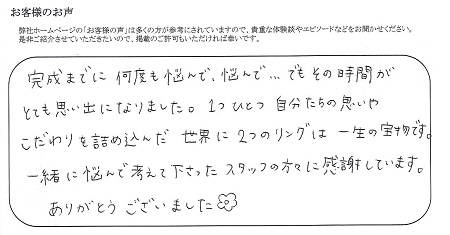 お客様のお声
弊社ホームページの「お客様の声」は多くの方が参考にされていますので、貴重な体験談やエピソードなどをお聞かせください。
是非ご紹介させていただきたいので、掲載のご許可もいただければ幸いです。
完成までに 何度も悩んで、悩んで… でも その時間が
とても思い出になりました。1つひとつ 自分たちの思いや
こだわりを詰め込んだ 世界に 2つのリングは 一生の宝物です。
一緒に悩んで考えて下さった スタッフの方々に 感謝しています。
ありがとう ございました